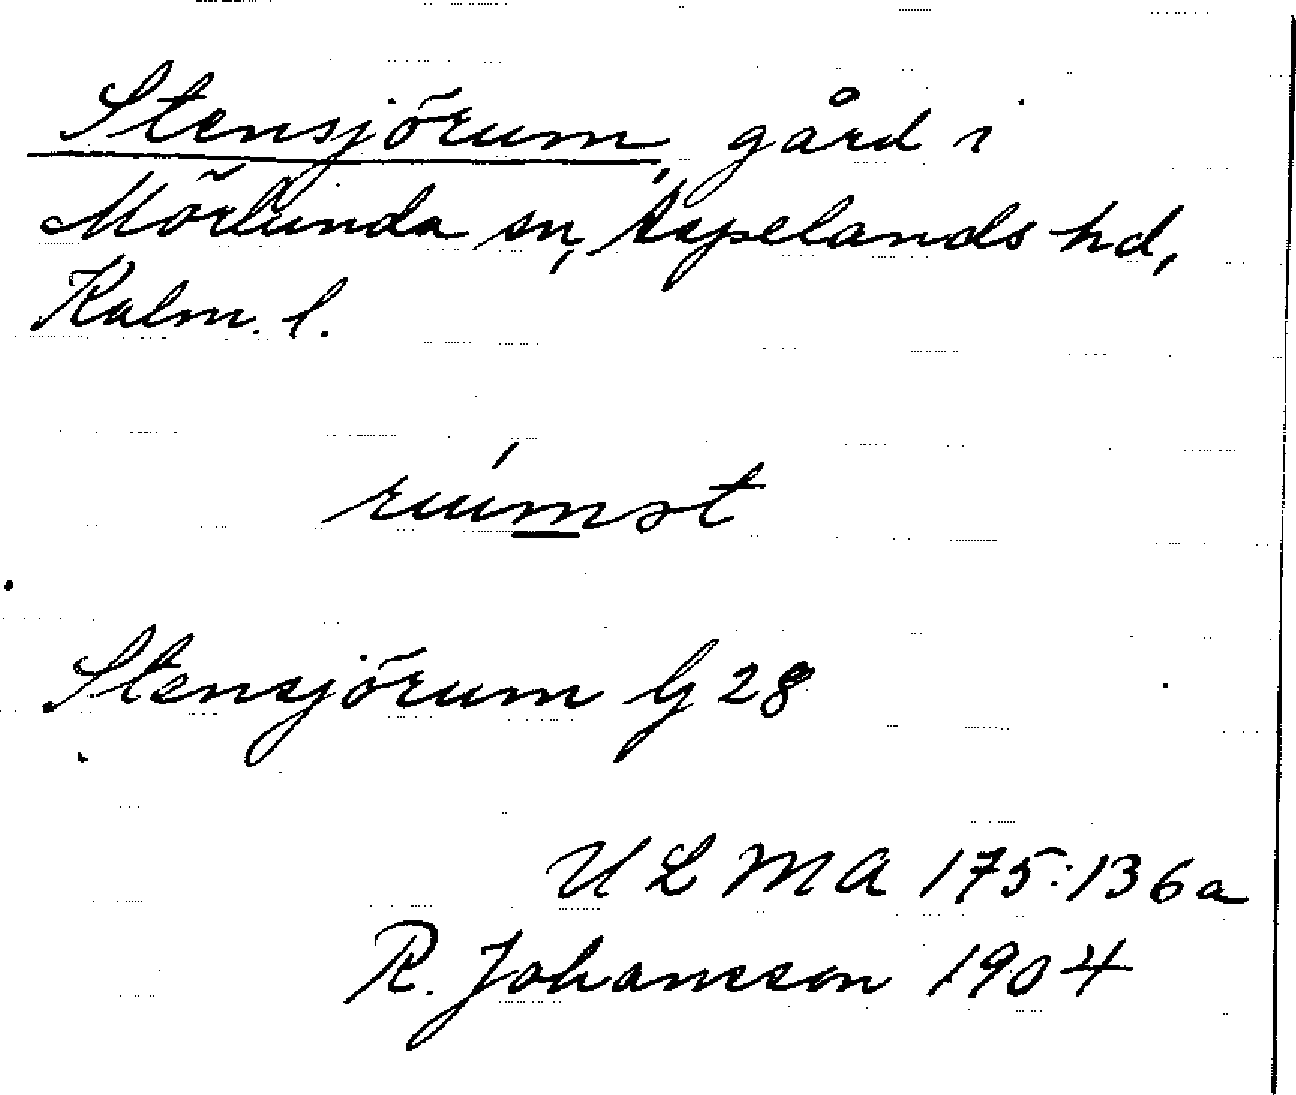 Stensjörum, gård i
Mörlunda sn, Aspelands hd,
Kalm. l.
rúmst
Stensjörum G 28
ULMA 175:136a
R. Johansson 1904